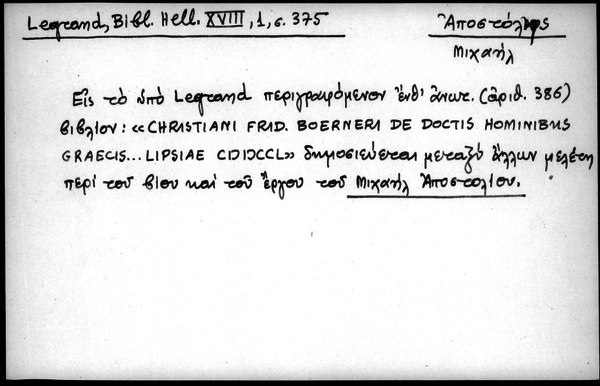 Legrand, Bibl. Hell. XVIII, 1, σ. 375
Ἀποστόλης
Μιχαήλ
Εἰς τὸ ὑπὸ Legrand περιγραφόμενον ἔνθ' ἄνωτ. (ἀριθ. 386)
βιβλίον: «CHRISTIANI FRID. BOERNERI DE DOCTIS HOMINIBUS
GRAECIS... LIPSIAE CIƆIƆCCL» δημοσιεύεται μεταξὺ ἄλλων μελέτη
περὶ τοῦ βίου καὶ τοῦ ἔργου τοῦ Μιχαὴλ Ἀποστολίου.